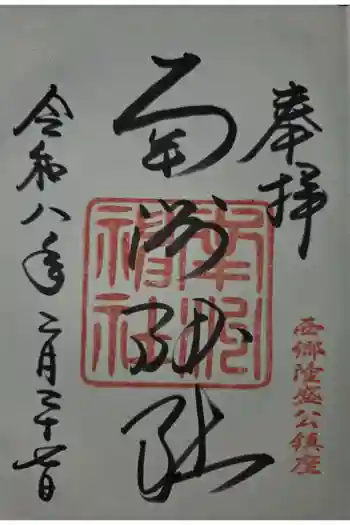 奉拝
西郷隆盛公鎮座
南洲神社
南洲神社
令和八年二月二十六日